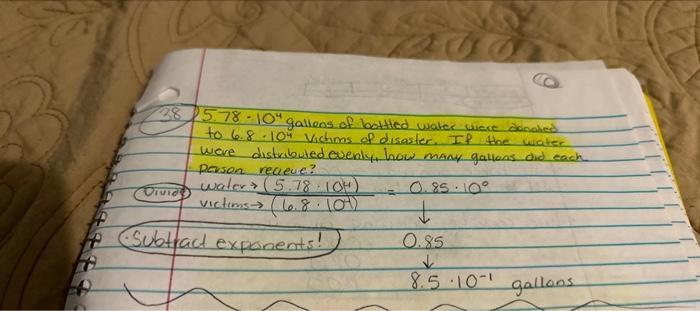 38 5.78 · 10⁴ gallons of bottled water were donated
to 6.8 · 10⁴ victims of disaster. If the water
were distributed evenly, how many gallons did each
person recieve?
Divide water → (5.78 · 10⁴) = 0.85 · 10⁰
victims → (6.8 · 10⁴)
↓
· Subtract exponents! 0.85
↓
8.5 · 10⁻¹ gallons